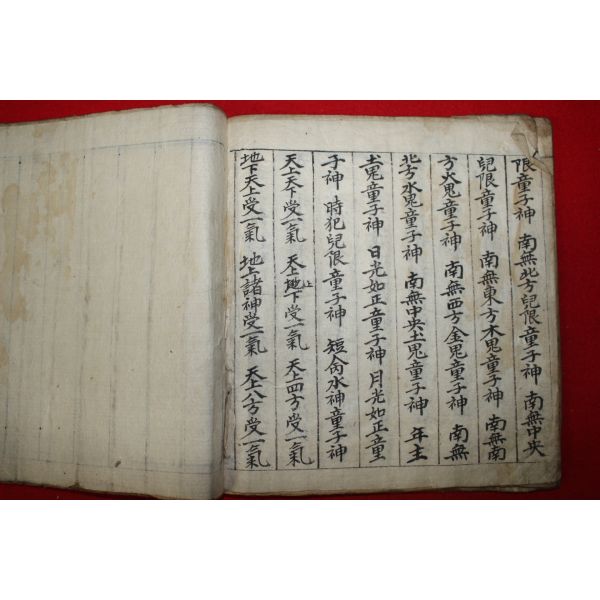 限童子神 南無北方兒限童子神 南無中央
兒限童子神 南無東方木鬼童子神 南無南
方火鬼童子神 南無西方金鬼童子神 南無
北方水鬼童子神 南無中央土鬼童子神 年主
土鬼童子神 日光如正童子神 月光如正童
子神 時犯兒限童子神 短命水神童子神
天上天下受一氣 天上地下受一氣 天上四方受一氣
地下天上受一氣 地上諸神受一氣 天上八方受一氣